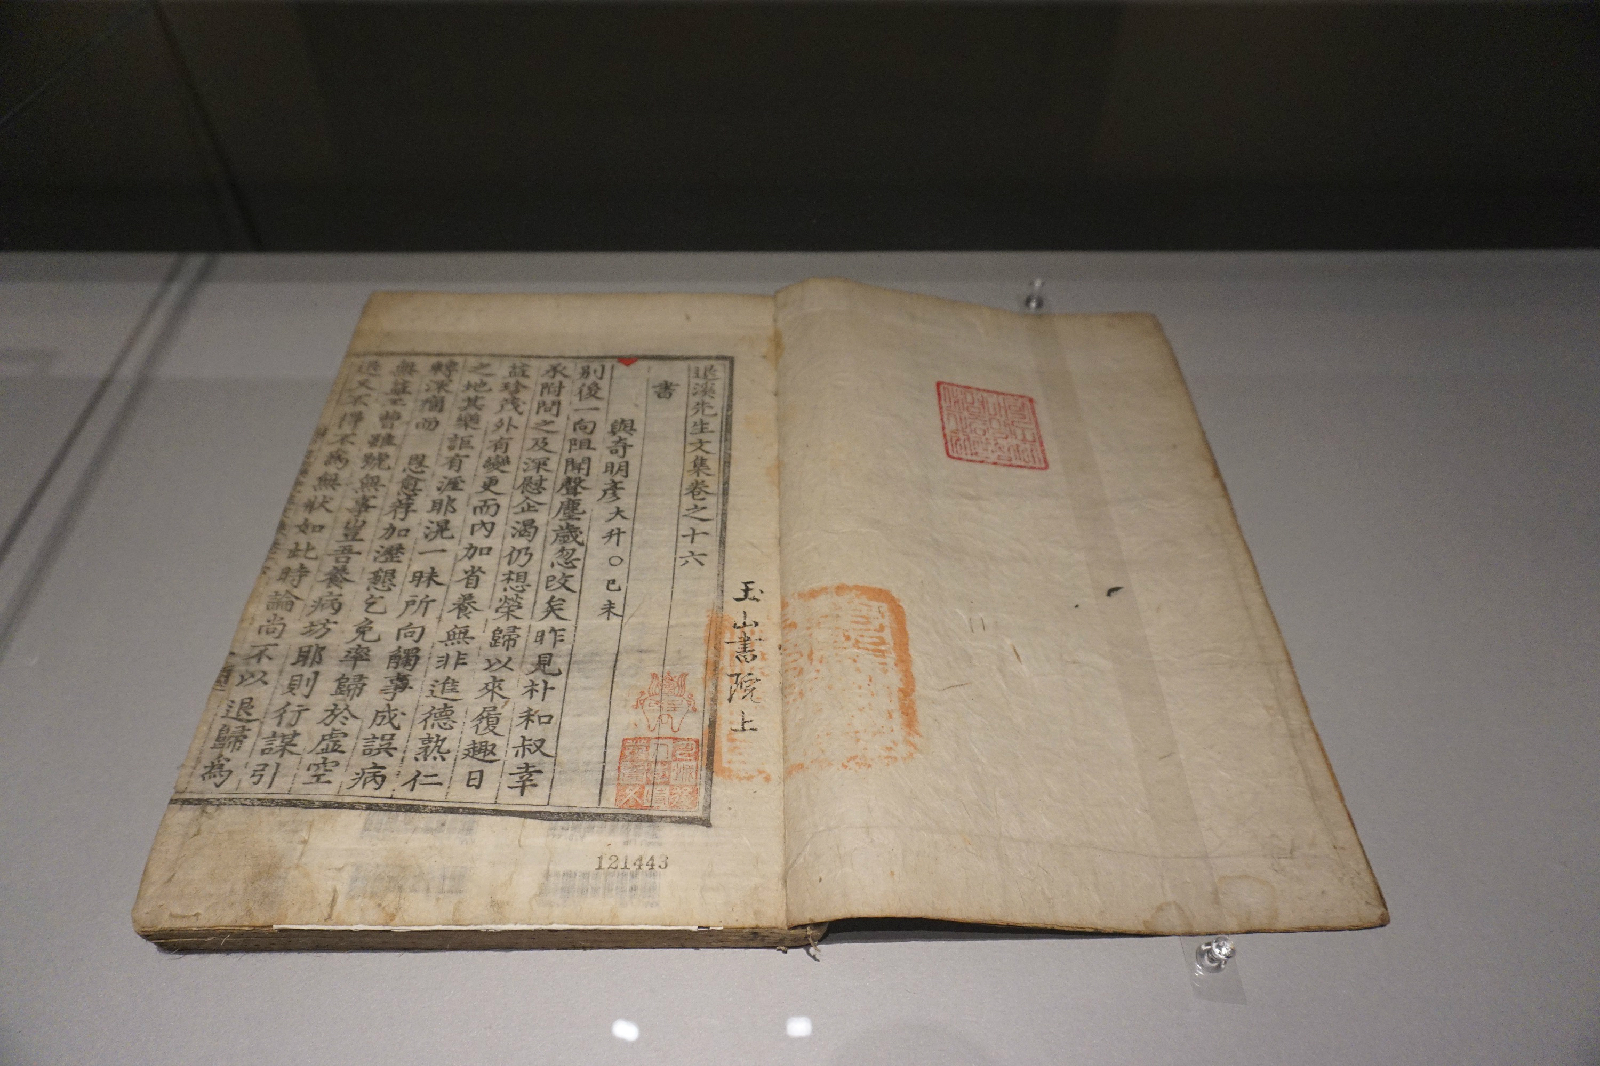 玉山書院上
退溪先生文集卷之十六
書
與奇明彥大升○己未
別後一向阻聞聲塵歲忽改矣昨見朴和叔幸
承附問之及深慰企渴仍想榮歸以來履趣日
益珍茂外有變更而內加省養無非進德熟仁
之地其樂詎有涯耶滉一味所向觸事成誤病
轉深痼而 恩愈荐加瀝懇乞免率歸於虛空
無益工曹雖號無事豈吾養病坊耶則行謀引
退又不得不為無狀如此時論尚不以退歸為
121443